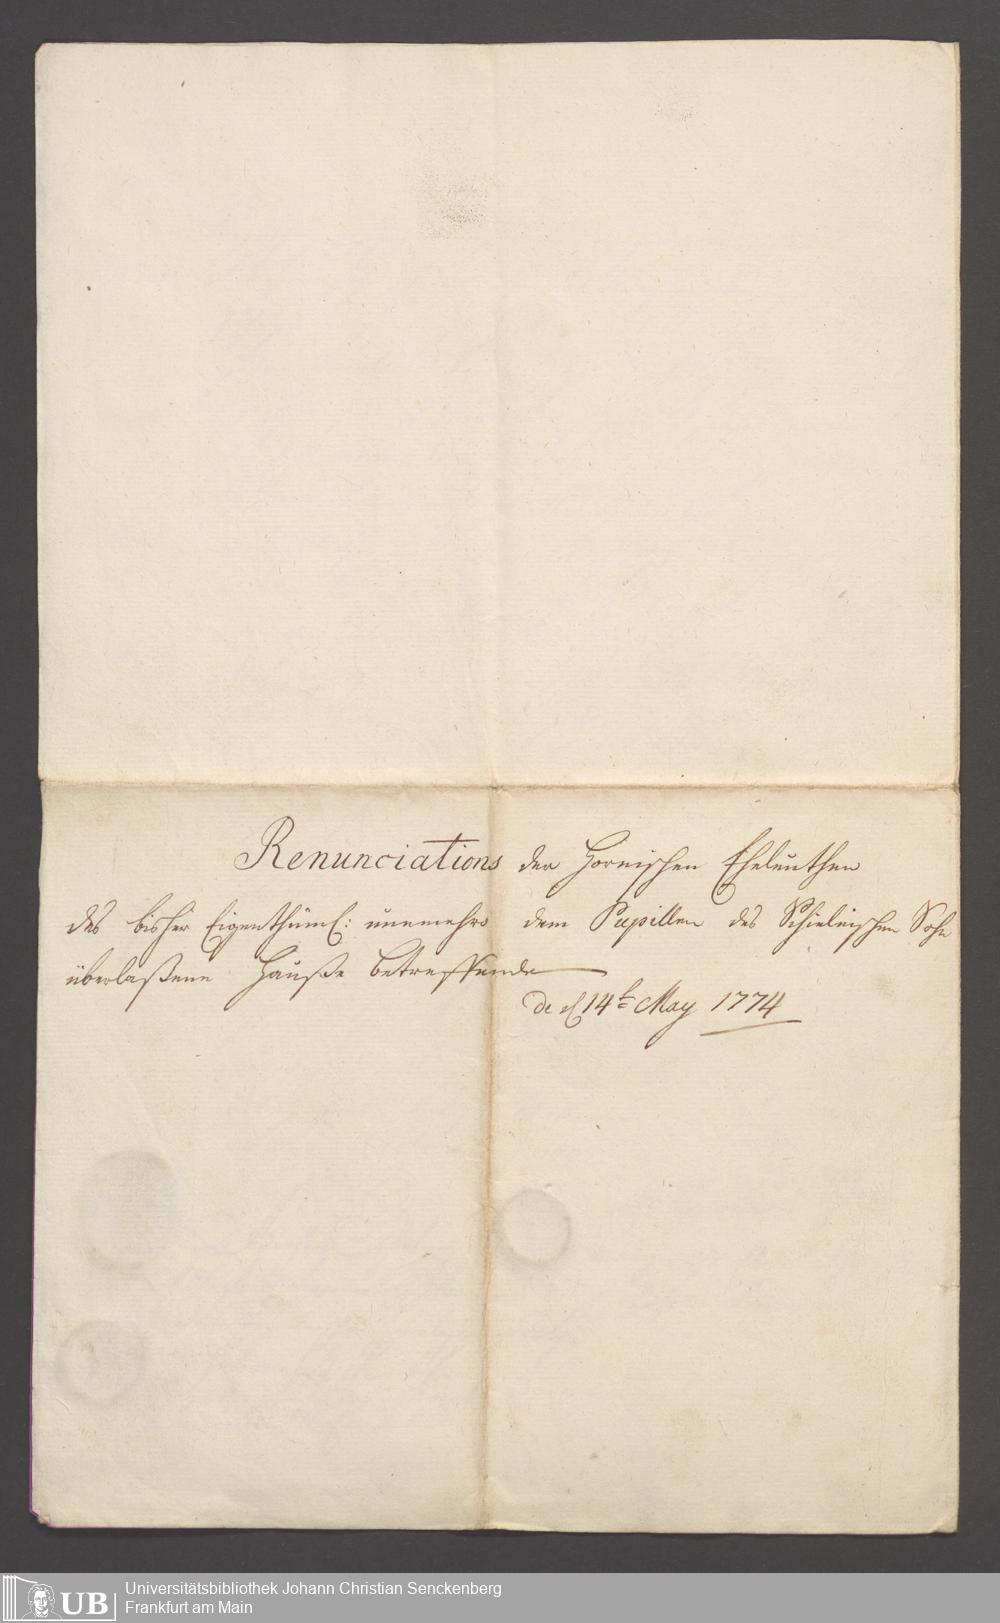 Renunciations der Hornischen Eheleuthen
des bisher Eigenthüml: nunmehro dem Pupillen des Schieleischen Sohn
überlaßene Hauße betreffende
de d 14t May 1774
Universitätsbibliothek Johann Christian Senckenberg
Frankfurt am Main
UB